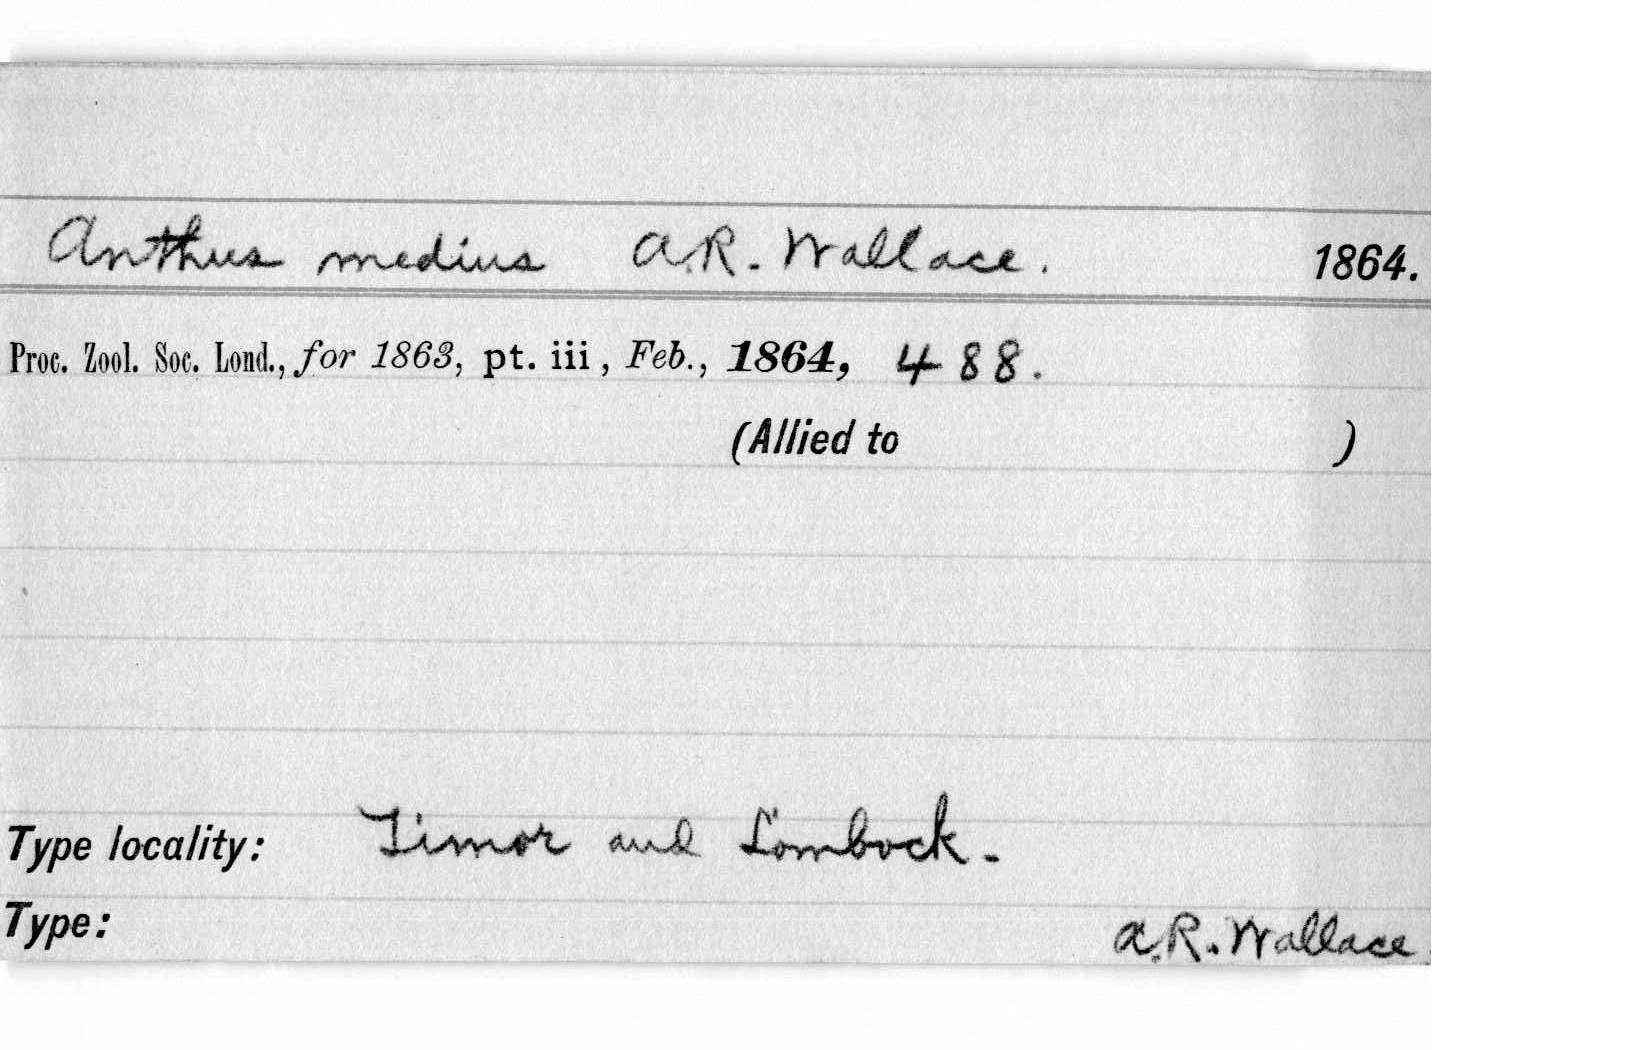 Anthus medius A.R. Wallace. 1864.
Proc. Zool. Soc. Lond., for 1863, pt. iii, Feb., 1864, 488.
(Allied to )
Type locality: Timor and Lombock.
Type: A.R. Wallace.